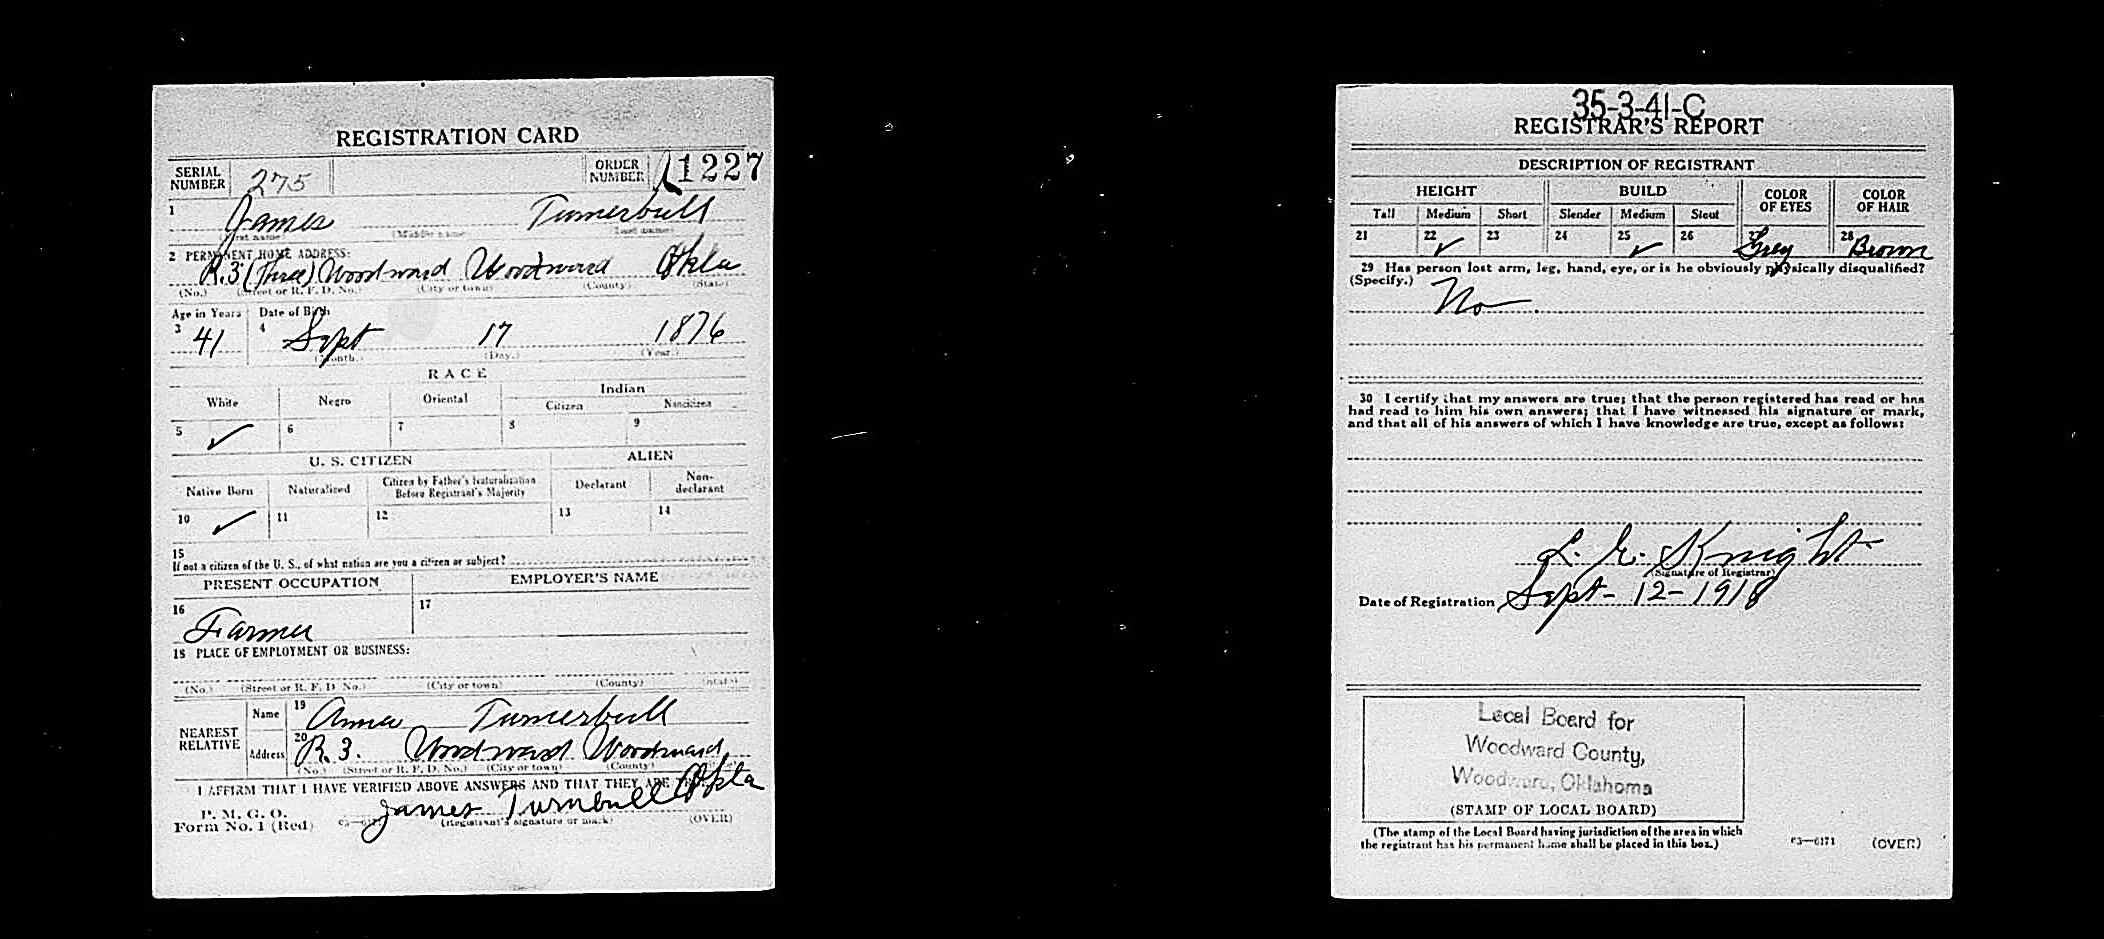 REGISTRATION CARD
SERIAL NUMBER 275 ORDER NUMBER 1227
1 James Turnerbull
(First name) (Middle name) (Last name)
2 PERMANENT HOME ADDRESS:
R.3 (Three) Woodward Woodward Okla
(No.) (Street or R. F. D. No.) (City or town) (County) (State)
Age in Years Date of Birth
3 41 4 Sept 17 1876
(Month.) (Day.) (Year.)
RACE
White Negro Oriental Indian
Citizen Noncitizen
5 ✓ 6 7 8 9
U. S. CITIZEN ALIEN
Native Born Naturalized Citizen by Father's Naturalization Before Registrant's Majority Declarant Non-declarant
10 ✓ 11 12 13 14
15
If not a citizen of the U. S., of what nation are you a citizen or subject?
PRESENT OCCUPATION EMPLOYER'S NAME
16 Farmer 17
18 PLACE OF EMPLOYMENT OR BUSINESS:
(No.) (Street or R. F. D. No.) (City or town) (County) (State)
NEAREST RELATIVE
Name 19 Anna Turnerbull
Address 20 R.3. Woodward Woodward Okla
(No.) (Street or R. F. D. No.) (City or town) (County)
I AFFIRM THAT I HAVE VERIFIED ABOVE ANSWERS AND THAT THEY ARE
P. M. G. O.
Form No. 1 (Red) James Turnbull
(Registrant's signature or mark) (OVER)
35-3-41-C
REGISTRAR'S REPORT
DESCRIPTION OF REGISTRANT
HEIGHT BUILD COLOR OF EYES COLOR OF HAIR
Tall Medium Short Slender Medium Stout
21 22 ✓ 23 24 25 ✓ 26 27 Grey 28 Brown
29 Has person lost arm, leg, hand, eye, or is he obviously physically disqualified?
(Specify.) No
30 I certify that my answers are true; that the person registered has read or has
had read to him his own answers; that I have witnessed his signature or mark,
and that all of his answers of which I have knowledge are true, except as follows:
L. E. Knight
(Signature of Registrar)
Date of Registration Sept- 12-1918
Local Board for
Woodward County,
Woodward, Oklahoma
(STAMP OF LOCAL BOARD)
(The stamp of the Local Board having jurisdiction of the area in which
the registrant has his permanent home shall be placed in this box.)
03—6171 (OVER)